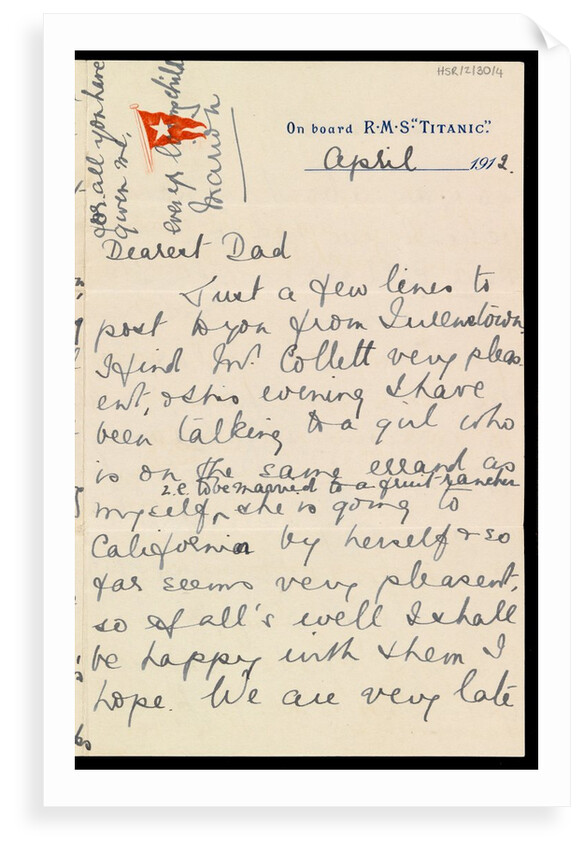 HSR/2/30/4
On board R·M·S·"TITANIC".
April 1912.
for all you have
given me,
ever yr loving child
Marion
Dearest Dad
Just a few lines to
post to you from Queenstown.
I find Mr. Collett very pleas-
ent, & this evening I have
been talking to a girl who
is on the same errand as
i.e. to be married to a fruit-rancher
myself, she is going to
California by herself & so
far seems very pleasent,
so if all's well I shall
be happy with them I
hope. We are very late